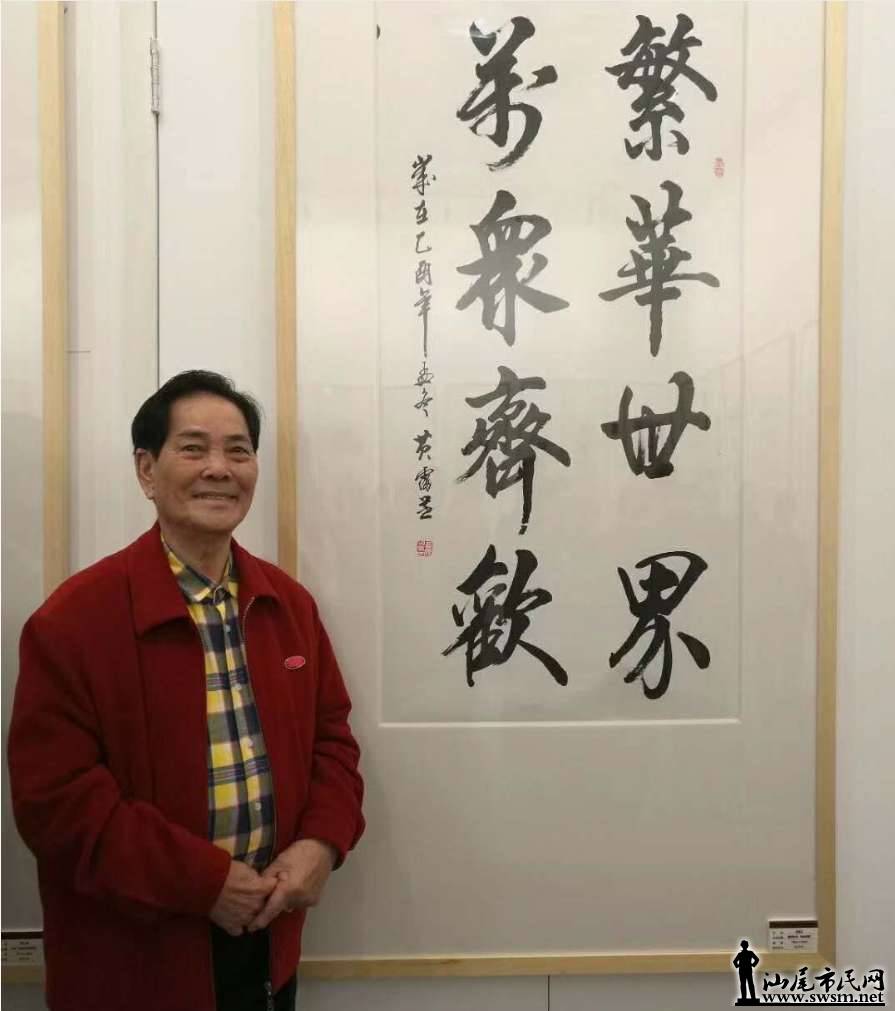 繁華世界
萬衆齊歡
歲在己酉年孟冬 黄
汕尾市民网
www.swsm.net